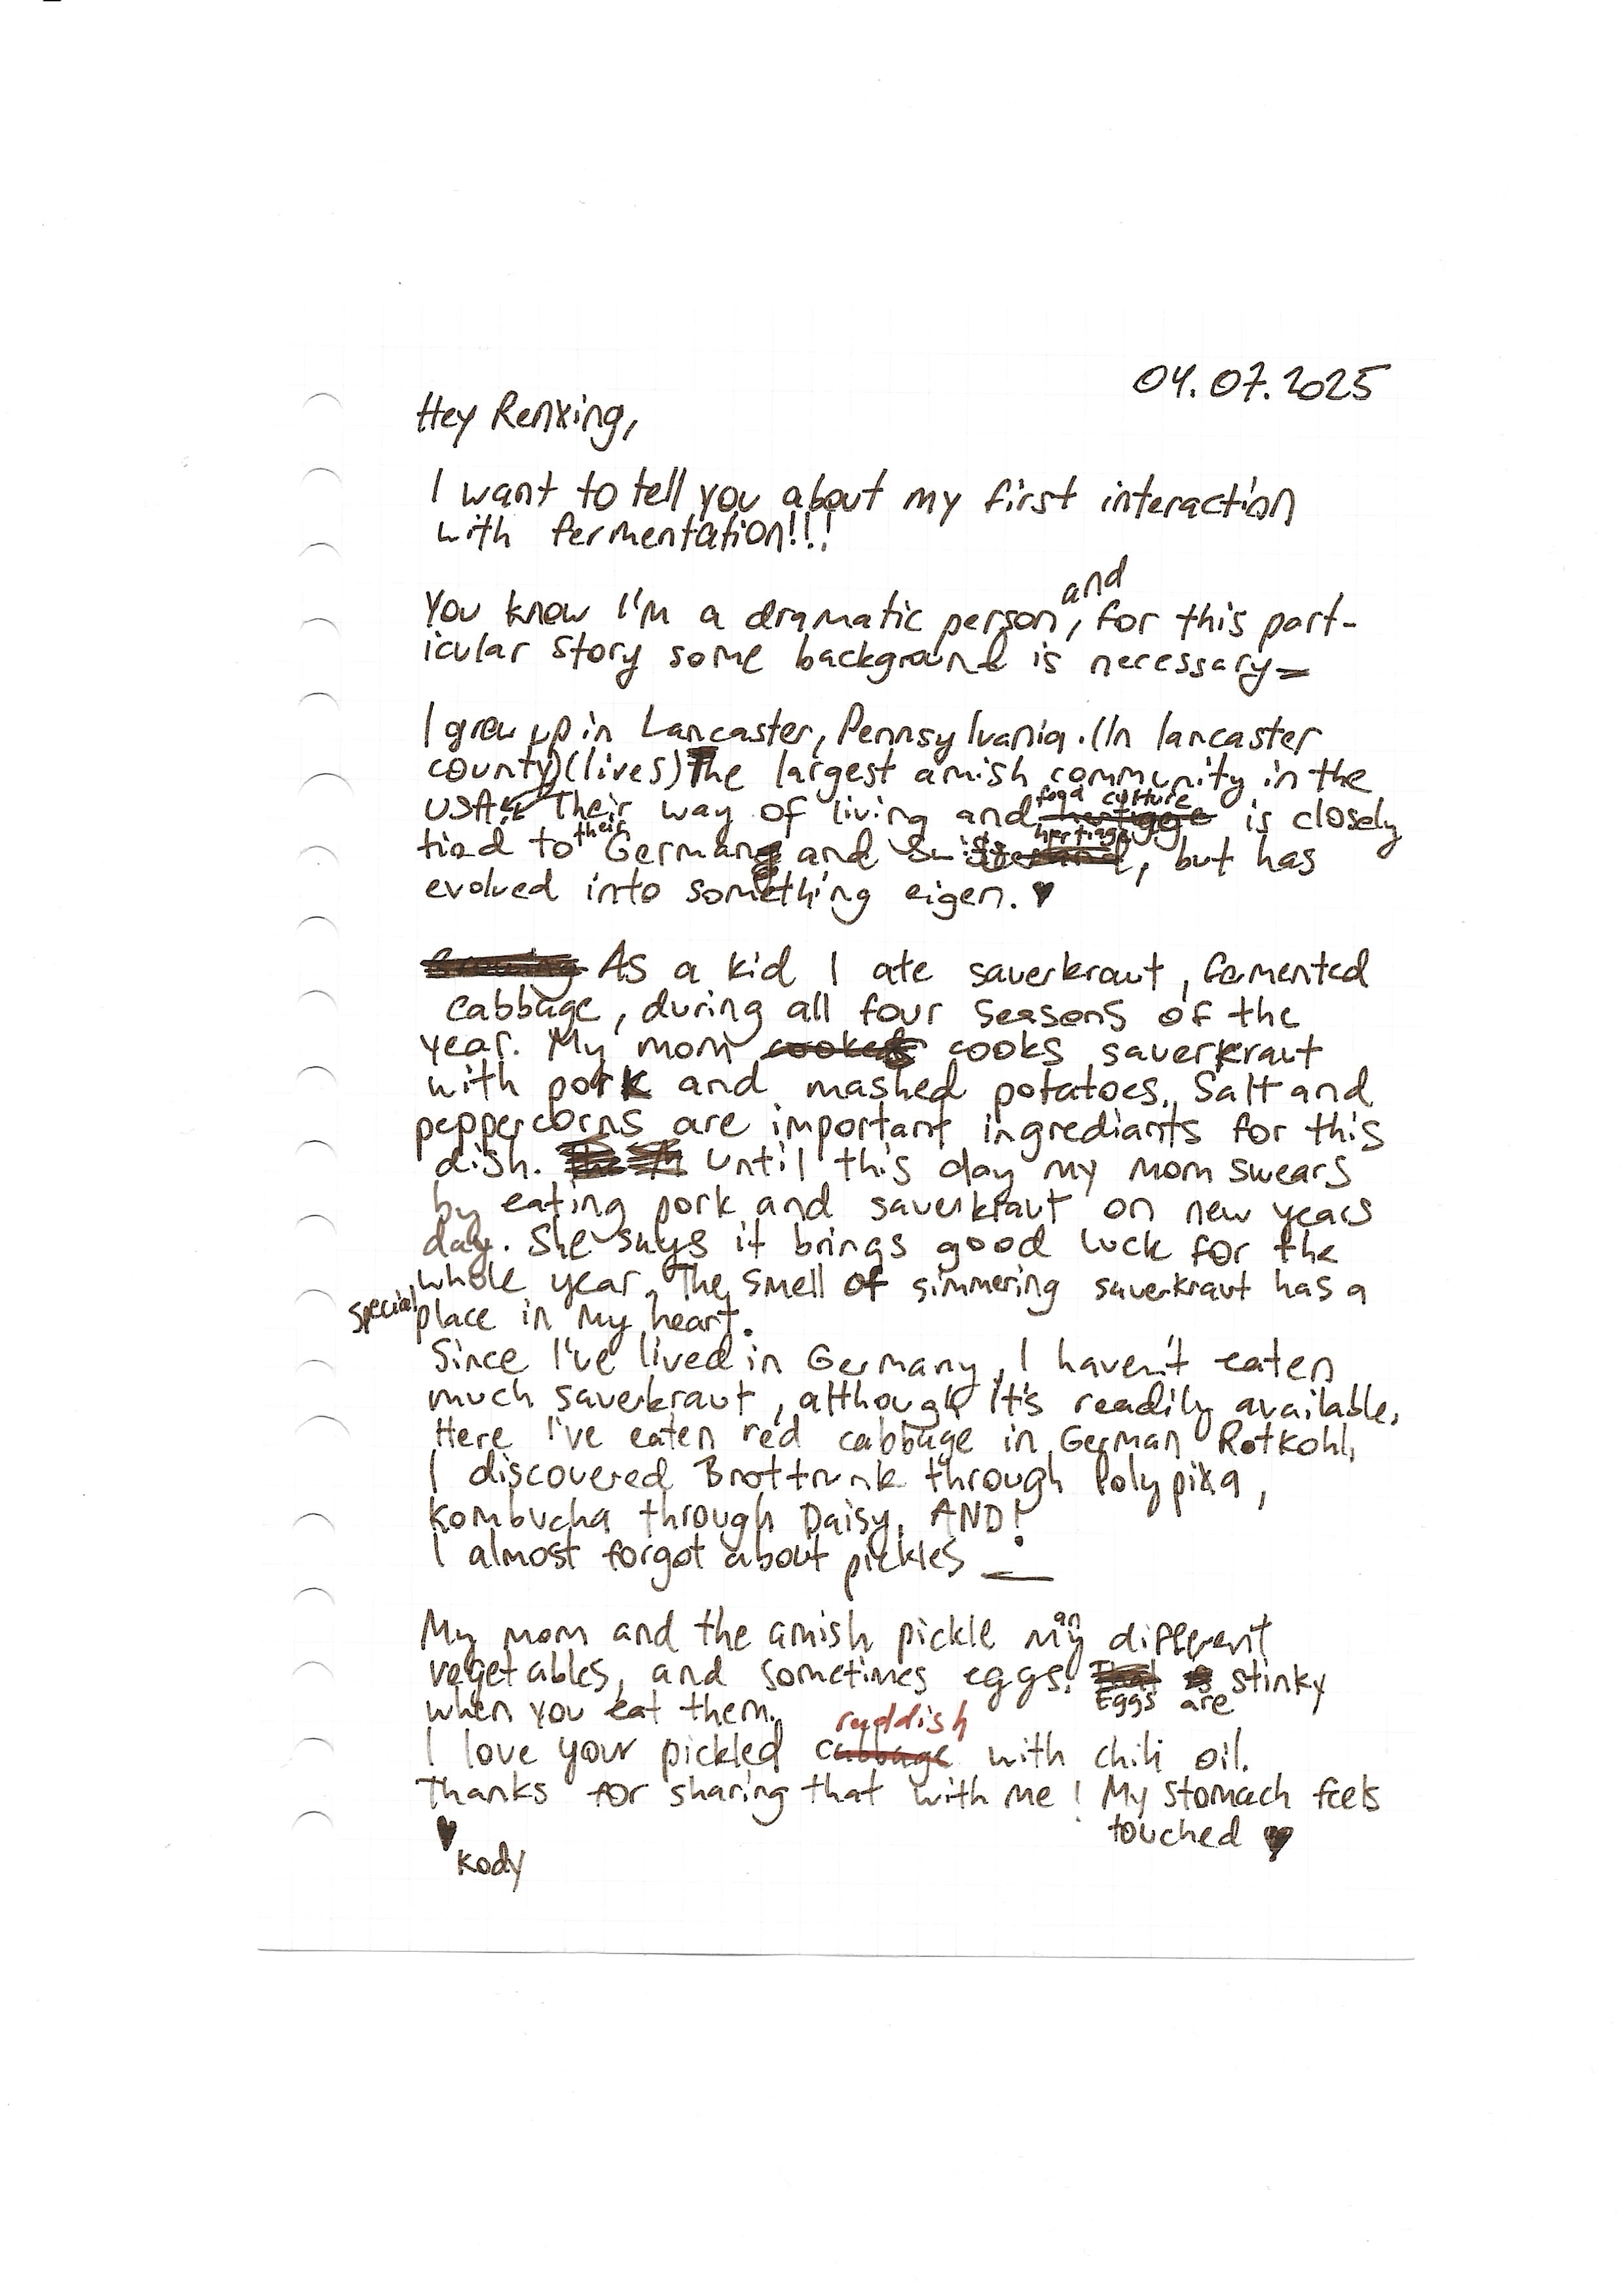 04.07.2025
Hey Renxing,
I want to tell you about my first interaction
with fermentation!!!
and
You know I'm a dramatic person, for this part-
icular story some background is necessary–
I grew up in Lancaster, Pennsylvania. (In lancaster
county) (lives) The largest amish community in the
USA. Their way of living and food culture is closely
tied to their German and Swiss hertiage, but has
evolved into something eigen. ♥
As a kid I ate sauerkraut, femented
cabbage, during all four seasons of the
year. My mom cooks sauerkraut
with pork and mashed potatoes. Salt and
peppercorns are important ingrediants for this
dish. Until this day my mom swears
by eating pork and sauerkraut on new years
day. She says it brings good luck for the
whole year. The smell of simmering sauerkraut has a
special place in my heart.
Since I've lived in Germany, I haven't eaten
much sauerkraut, although it's readily available.
Here I've eaten red cabbage in German Rotkohl,
I discovered Brottrunk through Polypixa,
Kombucha through Daisy, AND!
I almost forgot about pickles
My mom and the amish pickle many different
vegetables, and sometimes eggs. Eggs are stinky
when you eat them.
raddish
I love your pickled cabbage with chili oil.
Thanks for sharing that with me! My stomach feels
touched ♥
♥
Kody